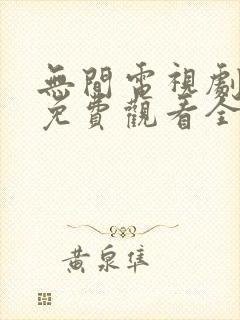 無間電視劇
免費觀看全
黃泉隼